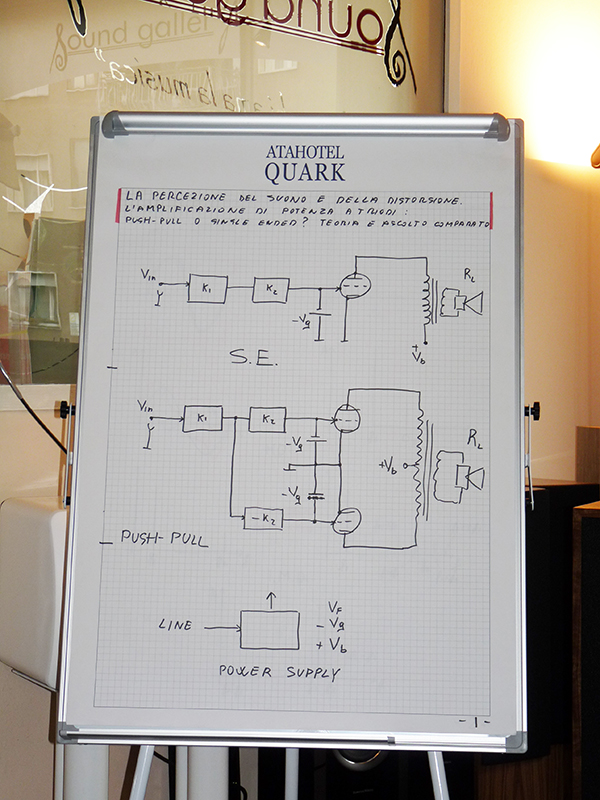 Sound gallery
ound ga
ama la musica"
ATAHOTEL
QUARK
LA PERCEZIONE DEL SUONO E DELLA DISTORSIONE.
L'AMPLIFICAZIONE DI POTENZA A TRIODI:
PUSH-PULL O SINGLE ENDED? TEORIA E ASCOLTO COMPARATO
Vin
K1
K2
-Vg
RL
+
Vb
S.E.
Vin
K1
K2
-Vg
+Vb
RL
-Vg
-K2
PUSH-PULL
LINE
VF
- Vg
+ Vb
POWER SUPPLY
-1-